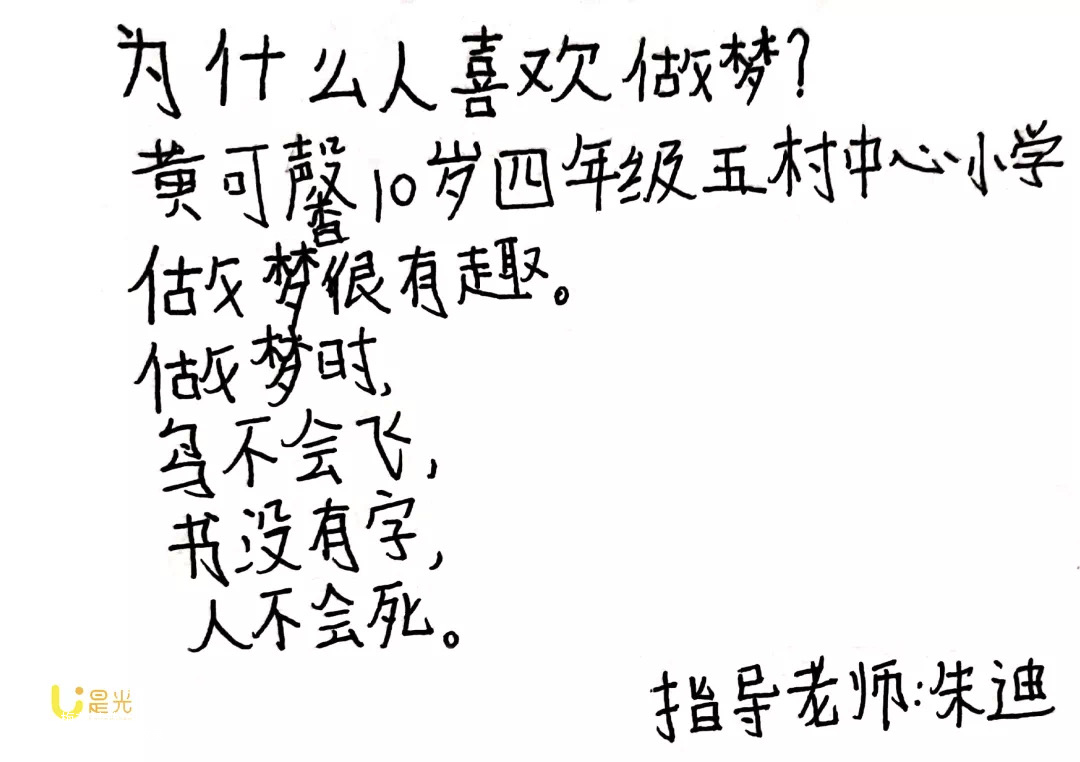 为什么人喜欢做梦?
黄可馨10岁四年级五村中心小学
做梦很有趣。
做梦时,
鸟不会飞,
书没有字,
人不会死。
是光
指导老师:朱迪